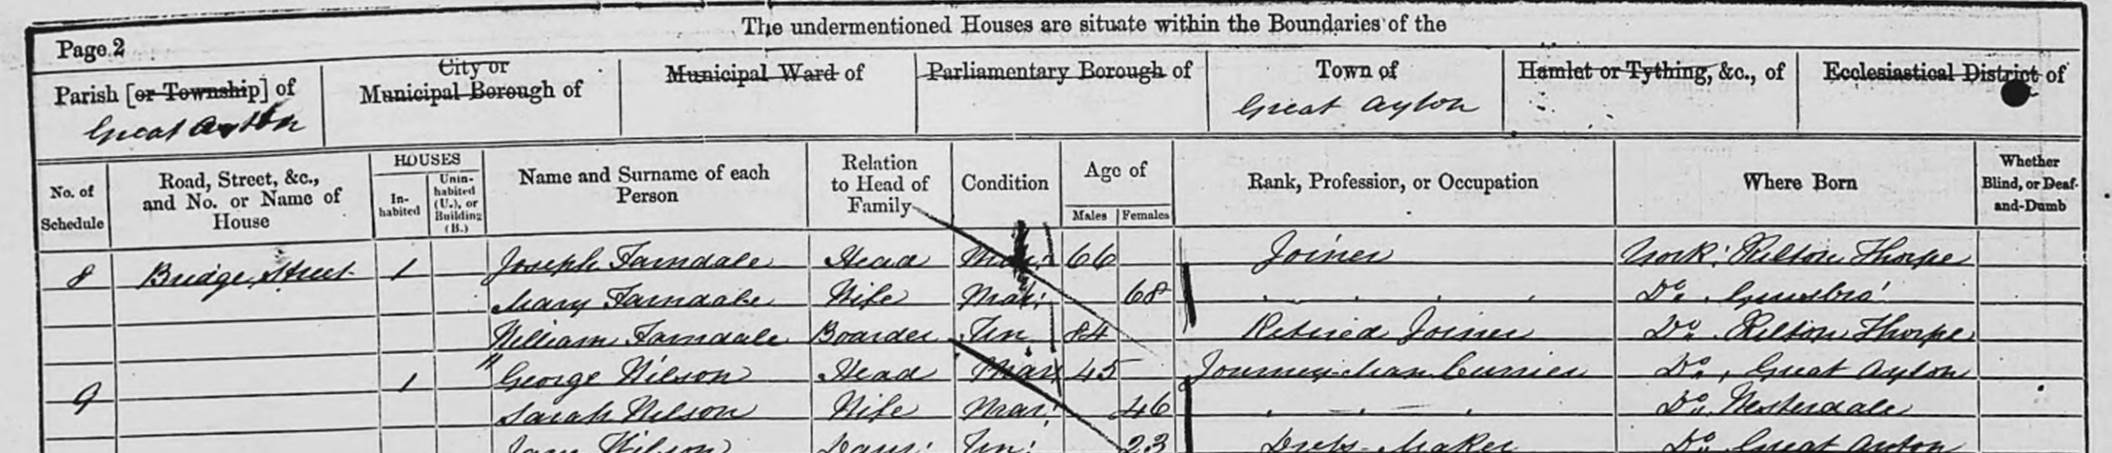 The undermentioned Houses are situate within the Boundaries of the
Page 2
Parish [or Township] of
Great Ayton
City or
Municipal Borough of
Municipal Ward of
Parliamentary Borough of
Town of
Great Ayton
Hamlet or Tything, &c., of
Ecclesiastical District of
No. of
Schedule
Road, Street, &c.,
and No. or Name of
House
HOUSES
In-
habited
Unin-
habited
(U.), or
Building
(B.)
Name and Surname of each
Person
Relation
to Head of
Family
Condition
Age of
Males Females
Rank, Profession, or Occupation
Where Born
Whether
Blind, or Deaf-
and-Dumb
8 Bridge Street 1 Joseph Farndale Head Mar: 66 Joiner York: Kilton Thorpe
Mary Farndale Wife Mar: 68 Do. Guisbro'
William Farndale Boarder Un 84 Retired Joiner Do. Kilton Thorpe
9 1 " George Wilson Head Mar 45 Journey-man Currier Do. Great Ayton
Sarah Wilson Wife Mar: 46 Do. Westerdale
Jane Wilson Daur: Un: 23 Dress-Maker Do. Great Ayton